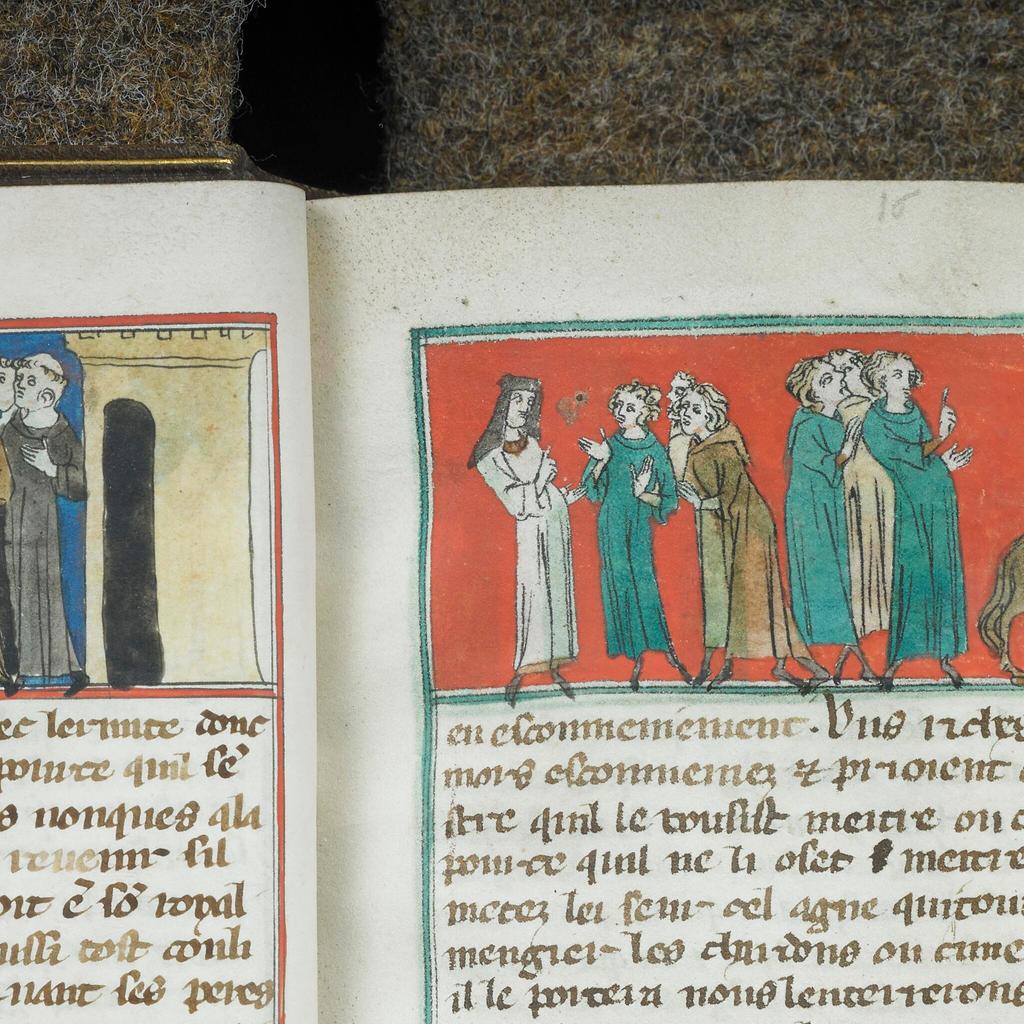 15
ec lermite donc
pour ce quil se
s nonques ala
reuenir sil
oit e so roial
ussi tost couli
nant ses peres
en escommeniement. Vns riches
mors escommeniez & prioient
stre quil le vousist mettre ou c
pour ce quil ne li oset mettre
metez lei seur cel agne qui tour
mengier les chardons ou cime
il le portera nous lenterrerons